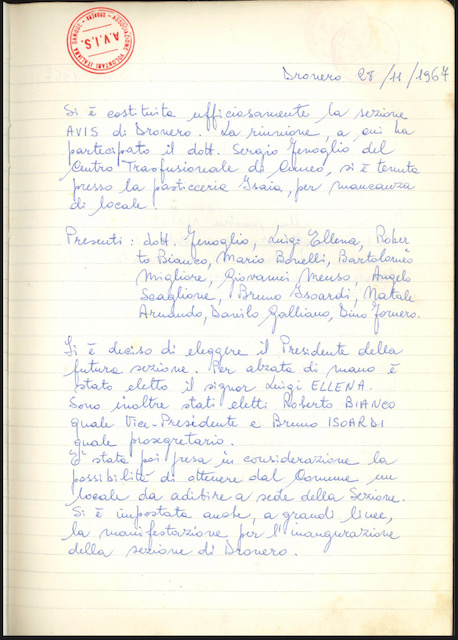 ASSOCIAZIONE VOLONTARI ITALIANI SANGUE
A.V.I.S.
Dronero 28/11/1967
Si è costituita ufficiosamente la sezione
AVIS di Dronero. La riunione, a cui ha
partecipato il dott. Sergio Fenoglio del
Centro Trasfusionale di Cuneo, si è tenuta
presso la pasticceria Isaia, per mancanza
di locale.
Presenti: dott. Fenoglio, Luigi Ellena, Rober
to Bianco, Mario Bonelli, Bartolomeo
Migliore, Giovanni Menso, Angelo
Scaglione, Bruno Isoardi, Natale
Arnaudo, Danilo Galliano, Dino Fornero.
Si è deciso di eleggere il Presidente della
futura sezione. Per alzata di mano è
stato eletto il signor Luigi ELLENA.
Sono inoltre stati eletti Roberto BIANCO
quale Vice-Presidente e Bruno ISOARDI
quale prosegretario.
E' stata poi presa in considerazione la
possibilità di ottenere dal Comune un
locale da adibire a sede della Sezione.
Si è impostata anche, a grandi linee,
la manifestazione per l'inaugurazione
della sezione di Dronero.